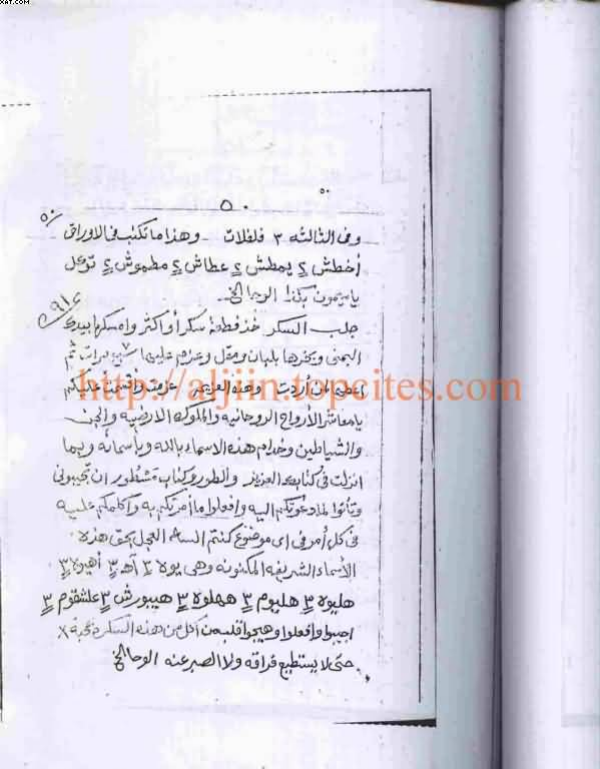 ٥٠
وفى الثالثه ٣ فلفلات وهذا ما تكتب فى الاوراق
أخطش ٢ يمطش ٢ عطاش ٢ مطموش ٢ توكل
يا ميمون بكذا الوحا الخ
جلب السكر خذ قطعة سكر أو اكثر وامسكها بيدك
اليمنى وبخرها بلبان ومقل وعزم عليها ٧ مرات ثم
اعطها لمن أردت وهذه العزيمه عزمت واقسمت عليكم
يا معاشر الأرواح الروحانيه والملوك الارضيه والجن
والشياطين وخدام هذه الاسماء بالله وبأسمائه وبما
انزلت فى كتابك العزيز والطور وكتاب مسطور ان تجيبونى
وتأتوا لما دعوتكم اليه وافعلوا ما أمرتكم به وأكلمكم عليه
فى كل أمر فى اى موضوع كنتم الساعه العجل بحق هذه
الأسماء الشريفه المكنونه وهى يوه ٣ آه ٣ أهيوه ٣
هليوه ٣ هليوم ٣ هملوه ٣ هيبورش ٣ علشقوم ٣
اجيبوا وافعلوا وهيجوا قلب من أكل من هذه السكر
حتى لا يستطيع فراقه ولا الصبر عنه الوحا الخ
http://aljiin.topcites.com